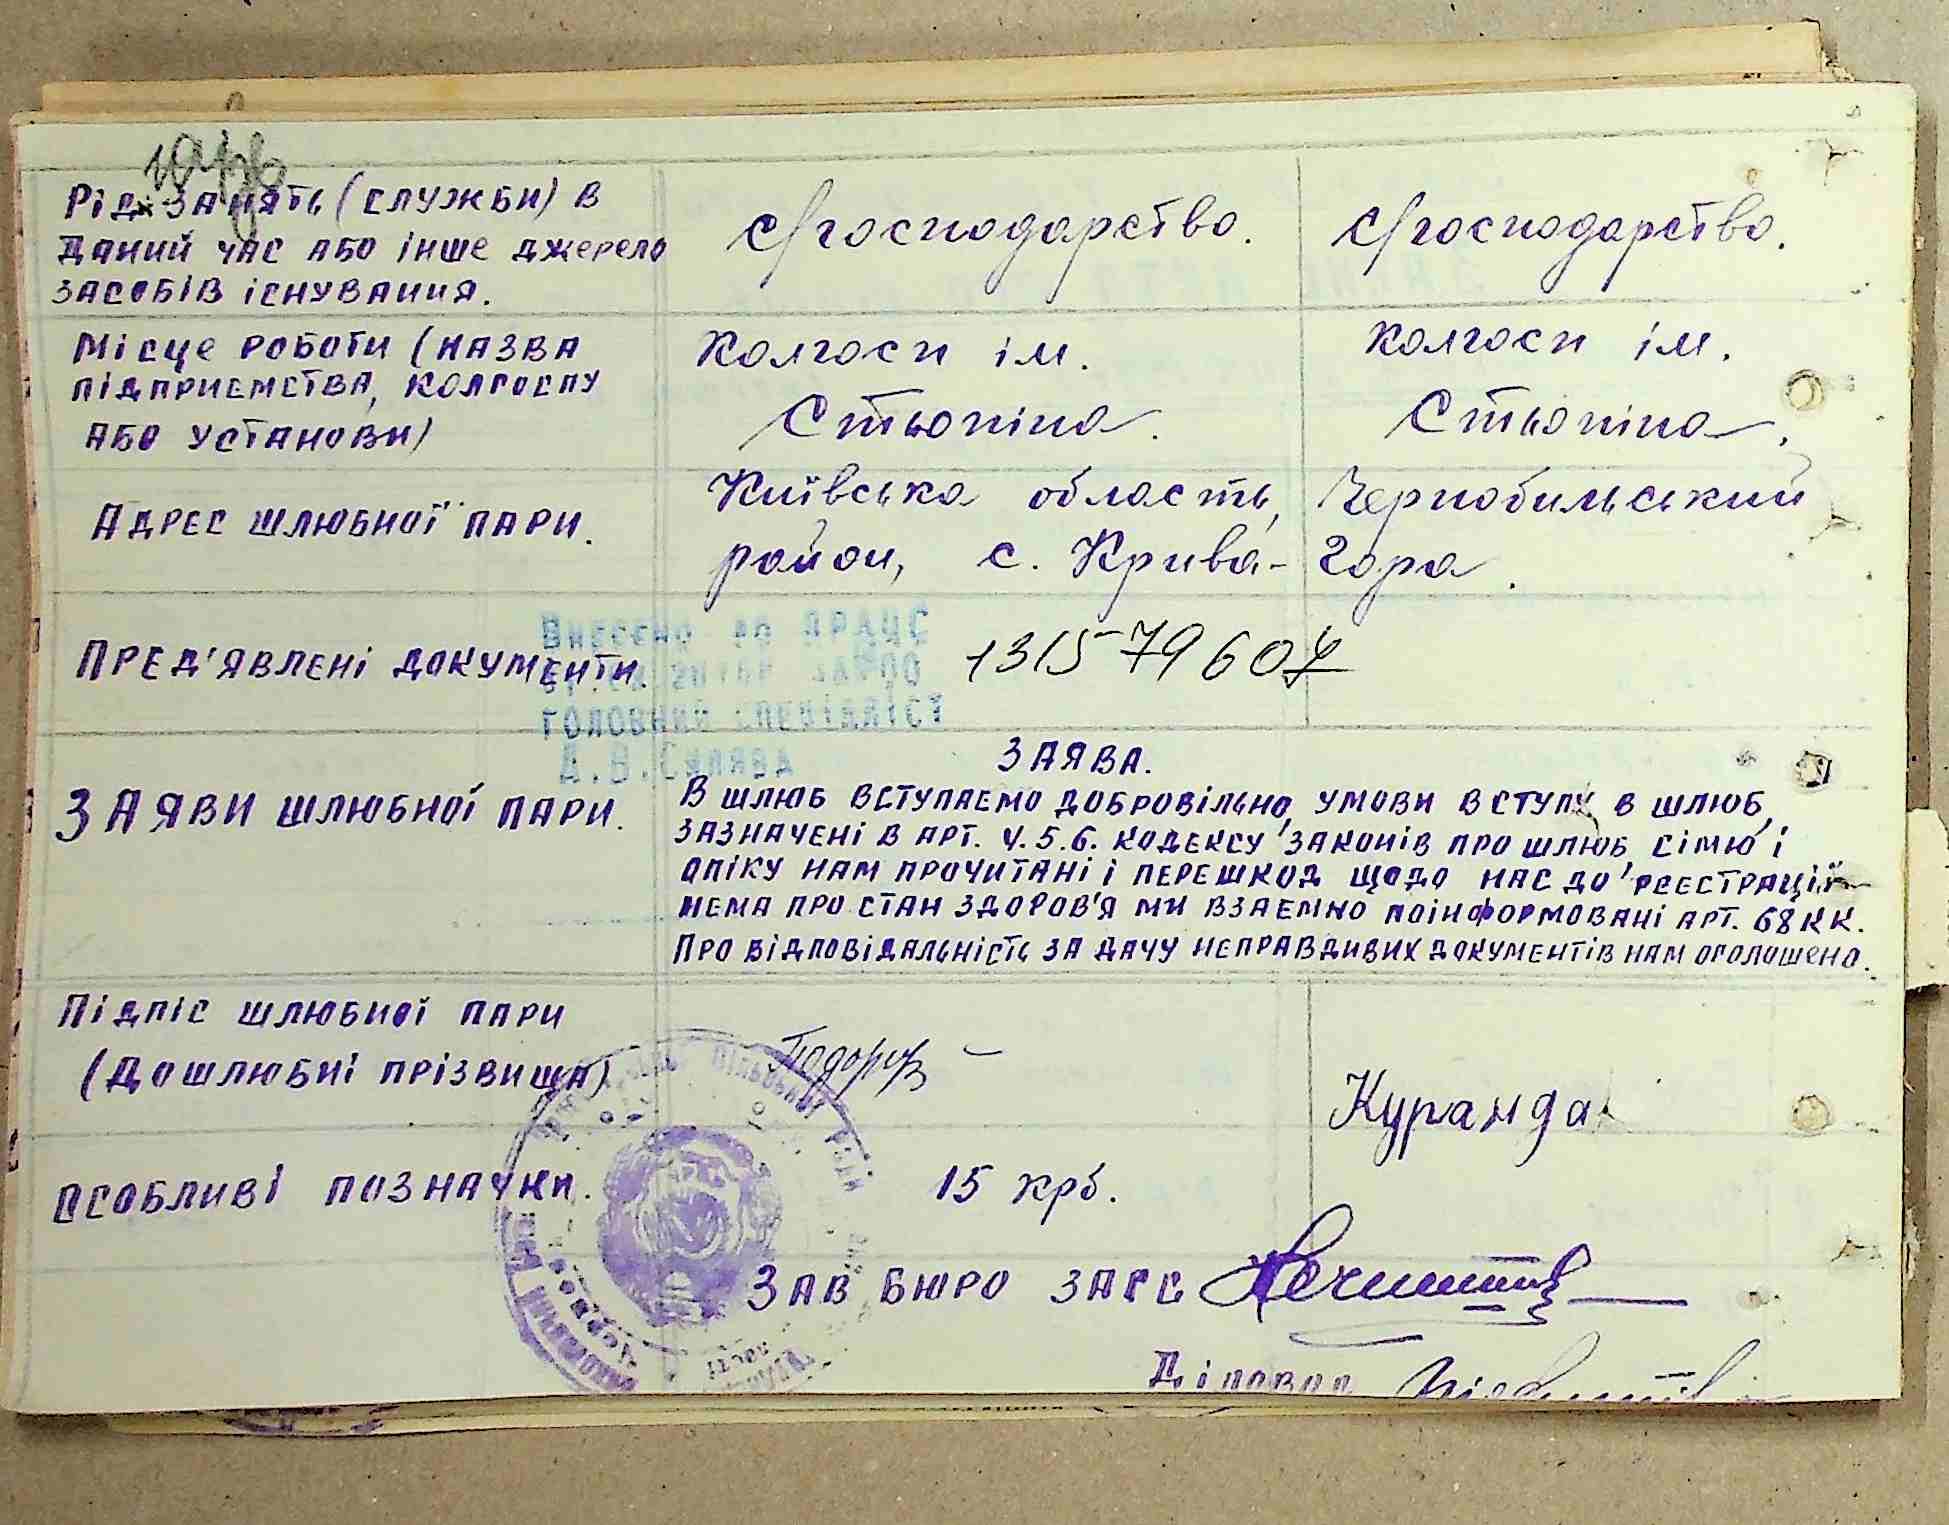 Рід занять (служби) в
даний час або інше джерело
засобів існування.
с/господарство.
с/господарство.
Місце роботи (назва
підприємства, колгоспу
або установи)
Колгосп ім.
Стьопіна.
Колгосп ім.
Стьопіна.
Адрес шлюбної пари.
Київська область, Чернобильський
район, с. Крива-Гора.
Пред'явлені документи.
Внесено до ДРАЦС
головний спеціаліст
131579607
ЗАЯВА.
Заяви шлюбної пари.
В шлюб вступаємо добровільно, умови вступу в шлюб,
зазначені в арт. 4.5.6. кодексу законів про шлюб, сімю і
опіку нам прочитані і перешкод щодо нас до реєстрації
нема про стан здоров'я ми взаємно поінформовані арт. 68 КК.
Про відповідальність за дачу неправдивих документів нам оголошено.
Підпіс шлюбної пари
(Дошлюбні прізвища)
Тодор
Куранда
Особливі позначки.
15 крб.
Зав бюро ЗАГС
Діловод